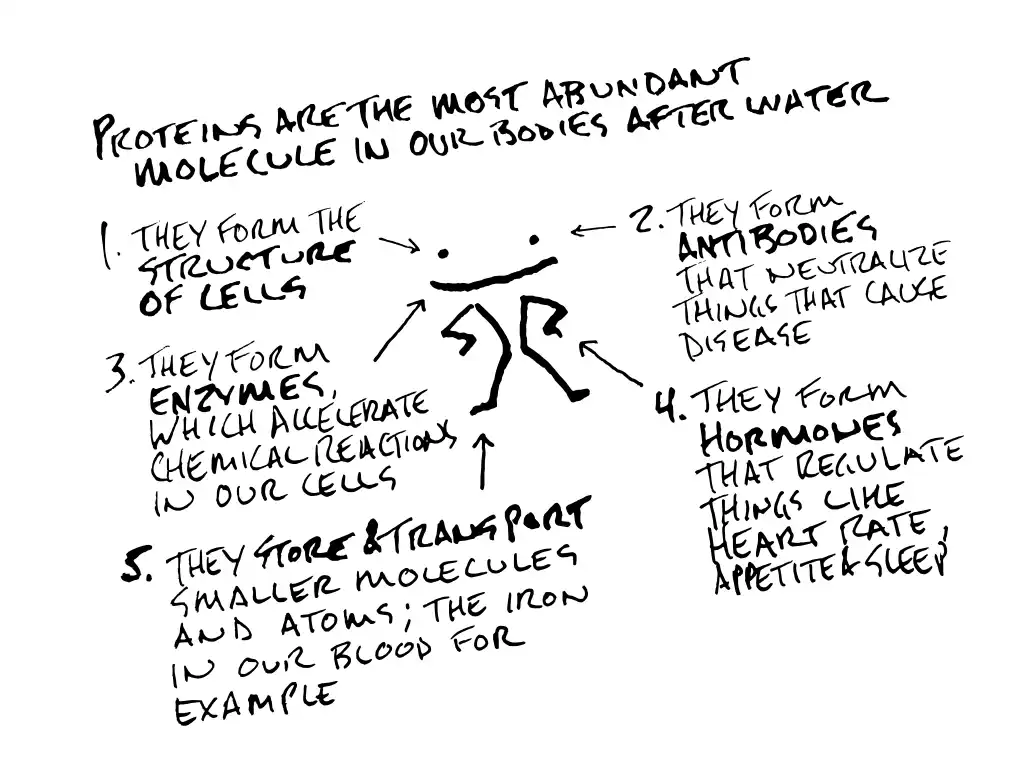 PROTEINS ARE THE MOST ABUNDANT
MOLECULE IN OUR BODIES AFTER WATER
1. THEY FORM THE
STRUCTURE
OF CELLS
2. THEY FORM
ANTIBODIES
THAT NEUTRALIZE
THINGS THAT CAUSE
DISEASE
3. THEY FORM
ENZYMES,
WHICH ACCELERATE
CHEMICAL REACTIONS
IN OUR CELLS
4. THEY FORM
HORMONES
THAT REGULATE
THINGS LIKE
HEART RATE,
APPETITE & SLEEP
5. THEY STORE & TRANSPORT
SMALLER MOLECULES
AND ATOMS; THE IRON
IN OUR BLOOD FOR
EXAMPLE